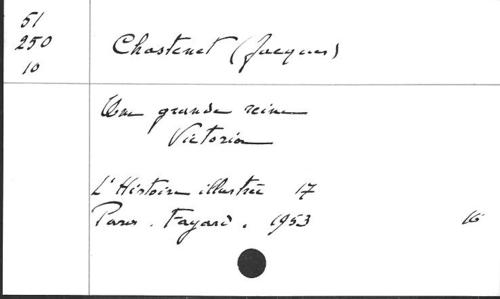 51
250
10
Chastenet (Jacques)
Une grande reine
Victoria
L'Histoire illustrée 17
Paris. Fayard. 1953 16